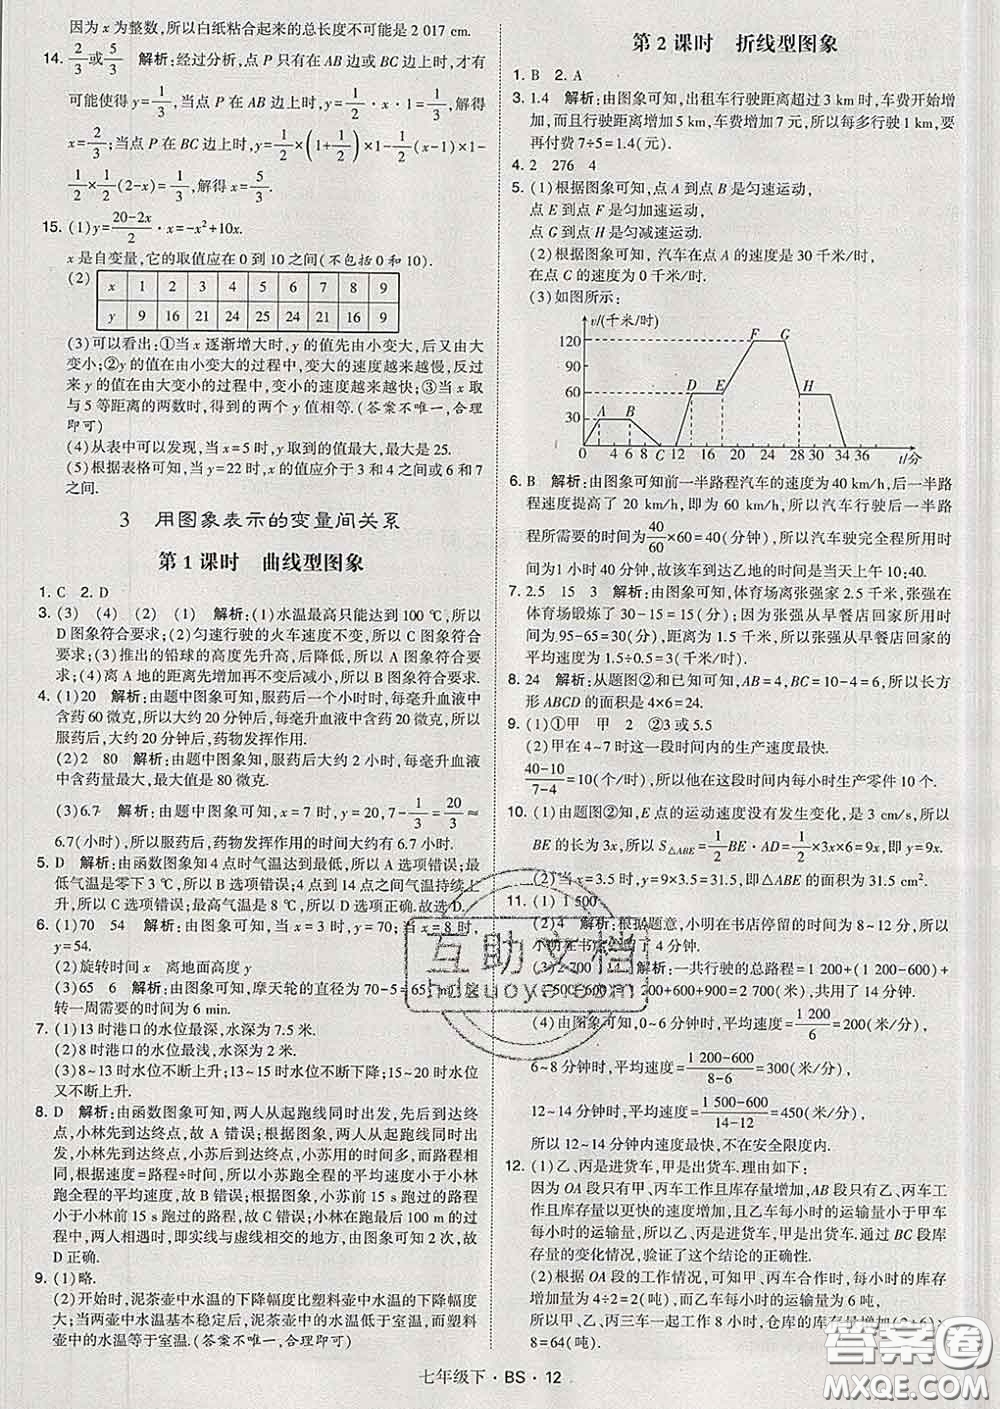 因为 x 为整数,所以白纸粘合起来的总长度不可能是 2 017 cm.
14. 2/3 或 5/3 解析:经过分析,点 P 只有在 AB 边或 BC 边上时,才有
可能使得 y=1/3,当点 P 在 AB 边上时,y=1/2·x·1=1/3,解得
x=2/3;当点 P 在 BC 边上时,y=1/2×(1+1/2)×1-1/2(x-1)×1-
1/2×1/2(2-x)=1/3,解得 x=5/3.
15. (1)y=(20-2x)/2·x=-x²+10x.
x 是自变量,它的取值应在 0 到 10 之间(不包括 0 和 10).
(2)
x 1 2 3 4 5 6 7 8 9
y 9 16 21 24 25 24 21 16 9
(3)可以看出:①当 x 逐渐增大时,y 的值先由小变大,后由大变
小;②y 的值在由小变大的过程中,变大的速度越来越慢,反过来
y 的值在由大变小的过程中,变小的速度越来越快;③当 x 取
与 5 等距离的两数时,得到的两个 y 值相等.(答案不唯一,合理
即可)
(4)从表中可以发现,当 x=5 时,y 取到的值最大,是 25.
(5)根据表格可知,当 y=22 时,x 的值应介于 3 和 4 之间或 6 和 7
之间.
3 用图象表示的变量间关系
第 1 课时 曲线型图象
1. C 2. D
3. (3) (4) (2) (1) 解析:(1)水温最高只能达到 100 ℃,所以
D 图象符合要求;(2)匀速行驶的火车速度不变,所以 C 图象符合
要求;(3)推出的铅球的高度先升高,后降低,所以 A 图象符合要
求;(4)离 A 地的距离先增加再不变后减小,所以 B 图象符合要求.
4. (1)20 解析:由题中图象可知,服药后一个小时时,每毫升血液中
含药 60 微克,所以大约 20 分钟后,每毫升血液中含药 20 微克,所
以服药后,大约 20 分钟后,药物发挥作用.
(2)2 80 解析:由题中图象可知,服药后 2 小时,每毫升血液中
含药量最大,最大值是 80 微克.
(3)6.7 解析:由题中图象可知,x=7 时,y=20,7-1/3=20/3≈
6.7(小时),所以服药后,药物发挥作用的时间大约有 6.7 小时.
5. D 解析:由函数图象知 4 点时气温达到最低,所以 A 选项错误;最
低气温是零下 3 ℃,所以 B 选项错误;4 点到 14 点之间气温持续上
升,所以 C 选项错误;最高气温是 8 ℃,所以 D 选项正确.故选 D.
6. (1)70 54 解析:由图象可知,当 x=3 时,y=70;当 x=8 时,
y=54.
(2)旋转时间 x 离地面高度 y
(3)65 6 解析:由图象可知,摩天轮的直径为 70-5=65(m),旋
转一周需要的时间为 6 min.
7. (1)13 时港口的水位最深,深度为 7.5 米.
(2)8 时港口的水位最浅,水深为 2 米.
(3)8~13 时水位不断上升;13~15 时水位不断下降;15 时以后水位
又不断上升.
8. D 解析:由函数图象可知,两人从起跑线同时出发,先后到达终
点,小林先到达终点,故 A 错误;根据图象,两人从起跑线同时出
发,小林先到达终点,小苏后到达终点,小苏用的时间多,而路程
相同,根据速度=路程÷时间,所以小苏跑全程的平均速度小于小林
跑全程的平均速度,故 B 错误;根据图象,小苏前 15 s 跑过的路程
小于小林前 15 s 跑过的路程,故 C 错误;小林在跑最后 100 m 的过
程中,两人相遇时,即实线与虚线相交的地方,由图象可知 2 次,故
D 正确.
9. (1)略.
(2)开始时,泥茶壶中水温的下降幅度比塑料壶中水温的下降幅度
大;当两壶中水温基本稳定后,泥茶壶中水温低于室温,而塑料
壶中的水温等于室温.(答案不唯一,合理即可)
第 2 课时 折线型图象
1. B 2. A
3. 1.4 解析:由图象可知,出租车行驶距离超过 3 km 时,车费开始增
加,而且行驶距离增加 5 km,车费增加 7 元,所以每多行驶 1 km,要
再付费 7÷5=1.4(元).
4. 2 276 4
5. (1)根据图象可知,点 A 到点 B 是匀速运动,
点 E 到点 F 是匀加速运动,
点 G 到点 H 是匀减速运动.
(2)根据图象可知,汽车在点 A 的速度是 30 千米/时,
在点 C 的速度为 0 千米/时.
(3)如图所示:
v/(千米/时)
120
90
60
30
A B C D E F G H
0 4 6 8 12 16 20 24 28 34 36 t/分
6. B 解析:由图象可知前一半路程汽车的速度为 40 km/h,后一半路
程速度提高了 20 km/h,即为 60 km/h,所以汽车行驶后一半路程
所需要的时间为 40/60×60=40(分钟),所以汽车驶完全程所需要的时
间为1 小时 40 分钟,故该车到达乙地的时间是当天上午 10:40.
7. 2.5 15 3 解析:由图象可知,体育场离张强家 2.5 千米,张强在
体育场锻炼了 30-15=15(分);因为张强从早餐店回家所用时
间为:95-65=30(分),距离为 1.5 千米,所以张强从早餐店回家的
平均速度为 1.5÷0.5=3(千米/时).
8. 24 解析:从题图②和已知可知,AB=4,BC=10-4=6,所以长方
形 ABCD 的面积是 4×6=24.
9. (1)①甲 甲 2 ②3 或 5.5
(2)甲在 4~7 时这一段时间内的生产速度最快.
(40-10)/(7-4)=10(个/时),所以他在这段时间内每小时生产零件 10 个.
10. (1)由题图②知,E 点的运动速度没有发生变化,是 3 cm/s,所以
BE 的长为 3x,所以 S△ABE=1/2 BE·AD=1/2×3x×6=9x,即 y=9x.
(2)当 x=3.5 时,y=9×3.5=31.5,即△ABE 的面积为 31.5 cm².
11. (1)1 500
(2)4 解析:根据题意,小明在书店停留的时间为 8~12 分,所以
小明在书店停留了 4 分钟.
(3)2 700 14 解析:一共行驶的总路程=1 200+(1 200-600)+
(1 500-600)=1 200+600+900=2 700(米),共用了 14 分钟.
(4)由图象可知,0~6 分钟时,平均速度=1 200/6=200(米/分),
6~8 分钟时,平均速度=(1 200-600)/(8-6)=300(米/分),
12~14 分钟时,平均速度=(1 500-600)/(14-12)=450(米/分),
所以 12~14 分钟内速度最快,不在安全限度内.
12. (1)乙、丙是进货车,甲是出货车.理由如下:
因为 OA 段只有甲、丙车工作且库存量增加,AB 段只有乙、丙车工
作且库存量以更快的速度增加,且甲车每小时的运输量大于甲车
每小时的运输量,所以乙、丙是进货车,甲是出货车.通过 BC 段库
存量的变化情况,验证了这个结论的正确性.
(2)根据 OA 段的工作情况,可知甲、丙车合作时,每小时的库存
增加量为 4÷2=2(吨),而乙车每小时的运输量为 6 吨,
所以甲、乙、丙三车一起工作 8 小时,仓库的库存量增加(2+6)×
8=64(吨).
七年级下·BS·12
互助文档
hdzuoye.com
答案圈
MXQE.COM